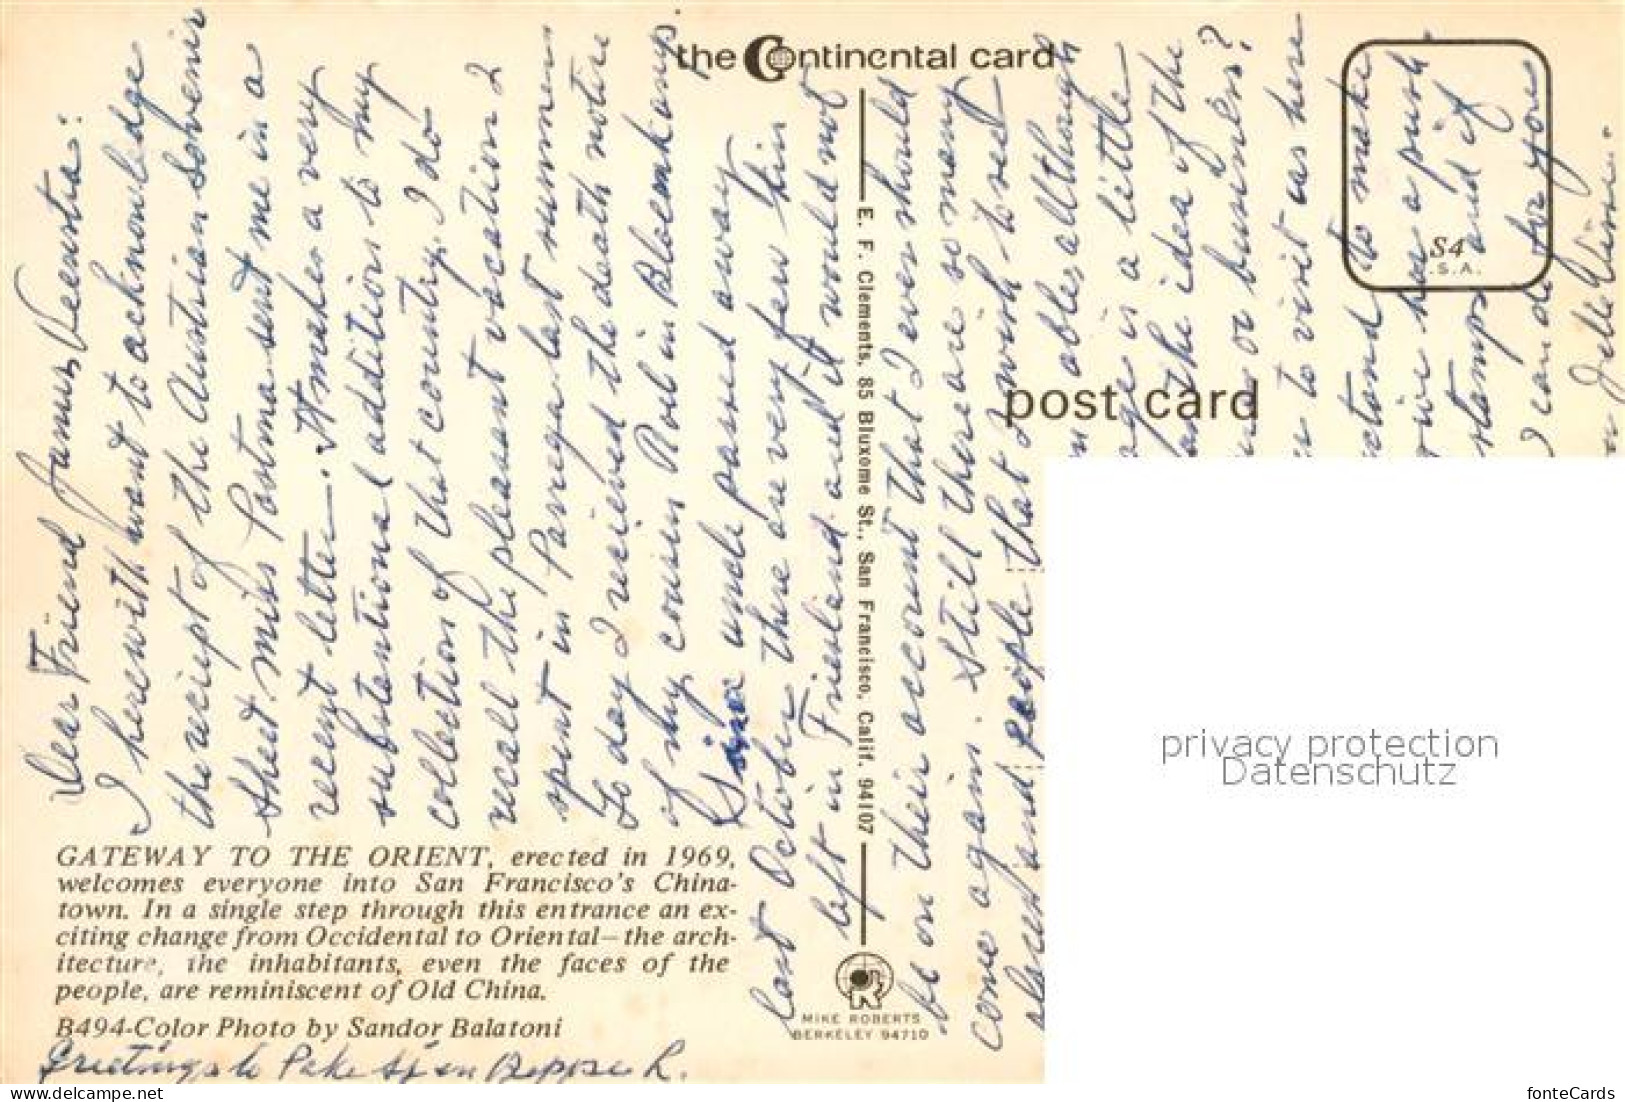 the Continental card
post card
S4
.S.A.
E. F. Clements, 85 Bluxome St., San Francisco, Calif. 94107
MIKE ROBERTS
BERKELEY 94710
GATEWAY TO THE ORIENT, erected in 1969,
welcomes everyone into San Francisco's China-
town. In a single step through this entrance an ex-
citing change from Occidental to Oriental—the arch-
itecture, the inhabitants, even the faces of the
people, are reminiscent of Old China.
B494-Color Photo by Sandor Balatoni
Dear Friend
I herewith want to acknowledge
the reciept of the Austrian Sovenir
Sheet. Miss Postma sent me in a
recent letter. It makes a very
substentional addition to my
collection of that country. I do
recall the pleasant vocation 2
spent in Parrega last summer
To day I recieved the death notice
of my cousin Roel in
uncle passed away
last October there are very few kin
left in Friesland and it would not
be on their account that I ever should
come again. Still there are so many
places and people that I wish to see
ables although
age is a little
the idea of the
or business?
to visit us here
stand to make
has a push
stamps and if
I can do for you
Greetings to
privacy protection
Datenschutz
delcampe.net
fonteCards